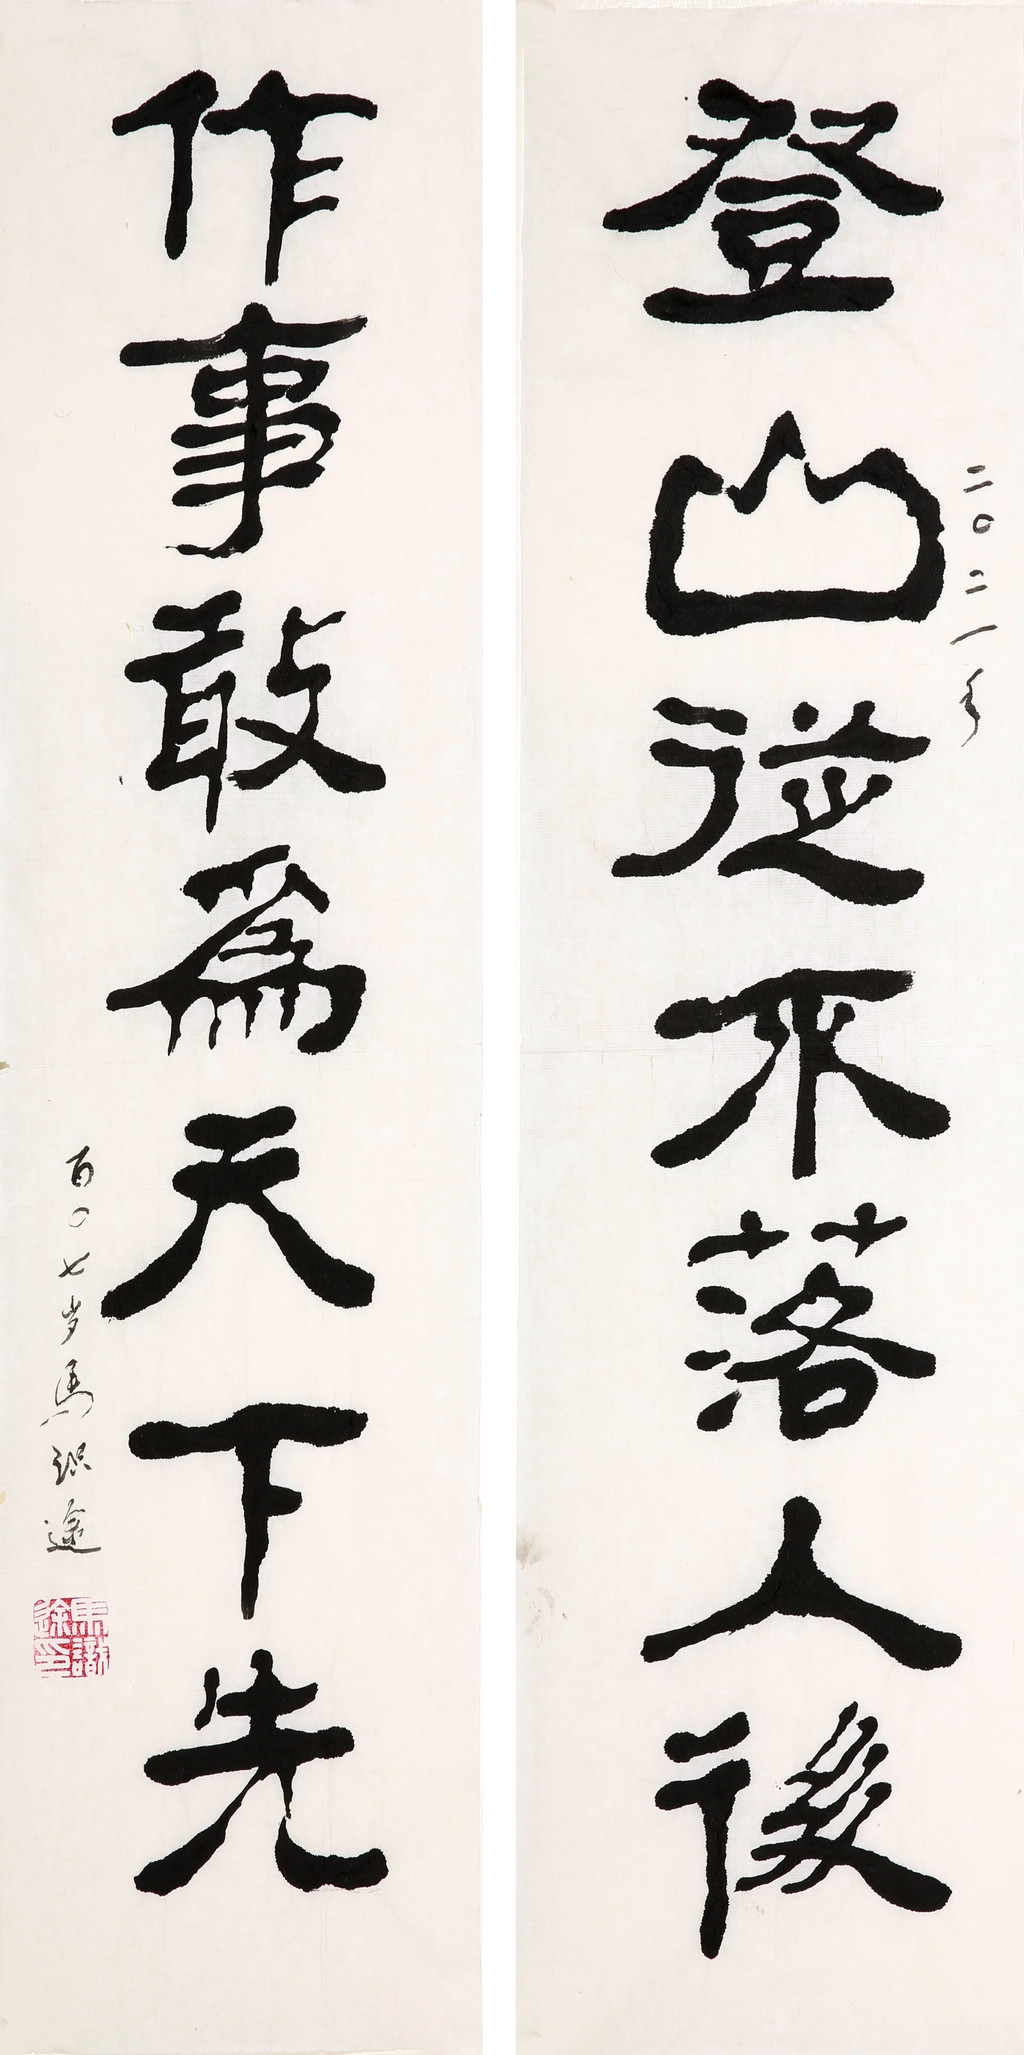 登山從不落人後
二〇二一年
作事敢為天下先
百〇七岁馬识途
馬識途印